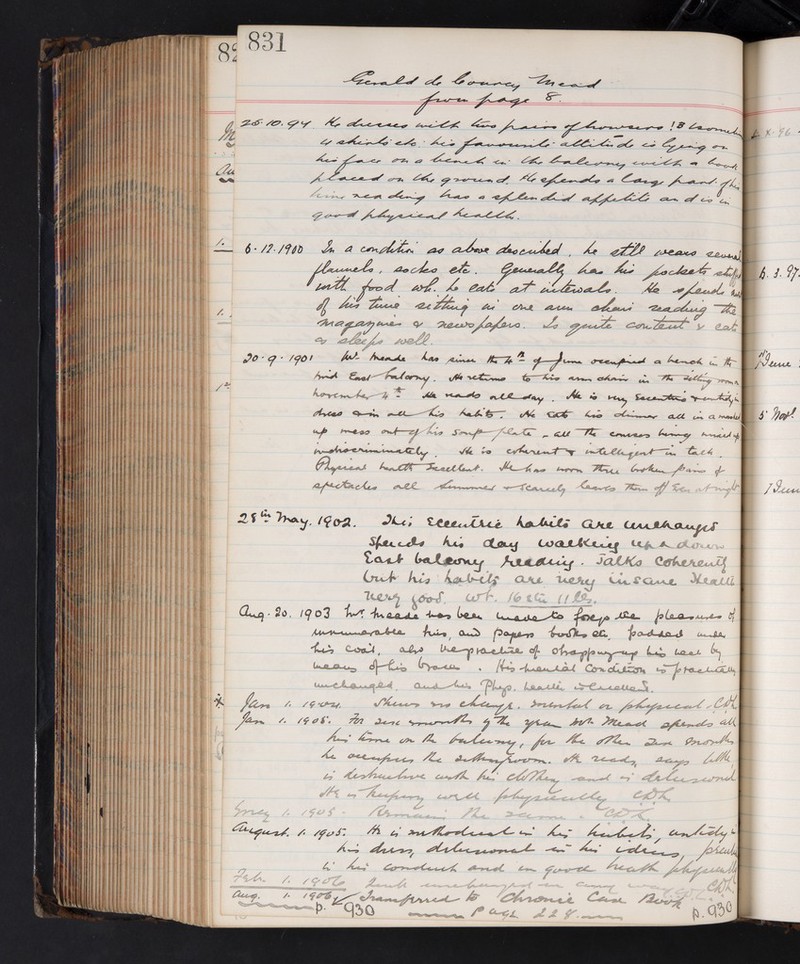 831
Gerald de Courcy Mead
from page 8.
25.10.94 He dresses with two pairs of trousers
& shirts etc: his favourite attitude is lying on
his face on a bench in the balcony with a
placed on the ground. He spends a large part of his
time reading has a splendid appetite and is in
good physical health.
6.12.1900 In a condition as above described. he still wears several
flannels, socks etc. Generally has his pockets
with food wh. he eats at intervals. He spends
of his time sitting in one arm chair reading the
magazines & newspapers. Is quite content & eats
& sleeps well.
20.9.1901 Mr. Meade has since the 4th of June occupied a bench in the
mid East balcony. He returns to his arm chair in the sitting room
November 4th. He reads all day. He is very eccentric & untidy in
dress & in all his habits. He eats his dinner all in a mashed
up mess out of his soup plate - all the courses being mixed up
indiscriminately. He is coherent & intelligent in talk.
Physical health excellent. He has worn three broken pairs of
spectacles all summer & scarcely leaves them off even at night
28th May. 1902. His eccentric habits are unchanged
Spends his day walking up & down
East balcony reading. Talks coherently
but his habits are very insane Health
very good. Wt. 16 st 11 lbs.
Aug. 20. 1903 Mr. Meade has been made to forego the pleasures of
innumerable ties, and papers books etc. padded under
his coat, also the practice of strapping up his neck by
means of his braces. His mental condition is practically
unchanged. and his Phys. health excellent.
Jan 1. 1904. Shews no change. mental or physical. CDH
Jan 1. 1905. For six months of the year Mr Mead spends all
his time on the balcony, for the other six months
he occupies the sitting room. He reads, says little,
is destructive with his clothing and is delusional
He is keeping well physically CDH
May 1. 1905 - Remains the same. CDH
August 1. 1905. He is methodical in his habits, untidy in
his dress, delusional in his ideas,
in his conduct and in good health physically
CDH
Feb. 1. 1906 unchanged in any way
Aug. 1. 1906 Transferred to Chronic Case Book
p. 930 Page 228. p. 930